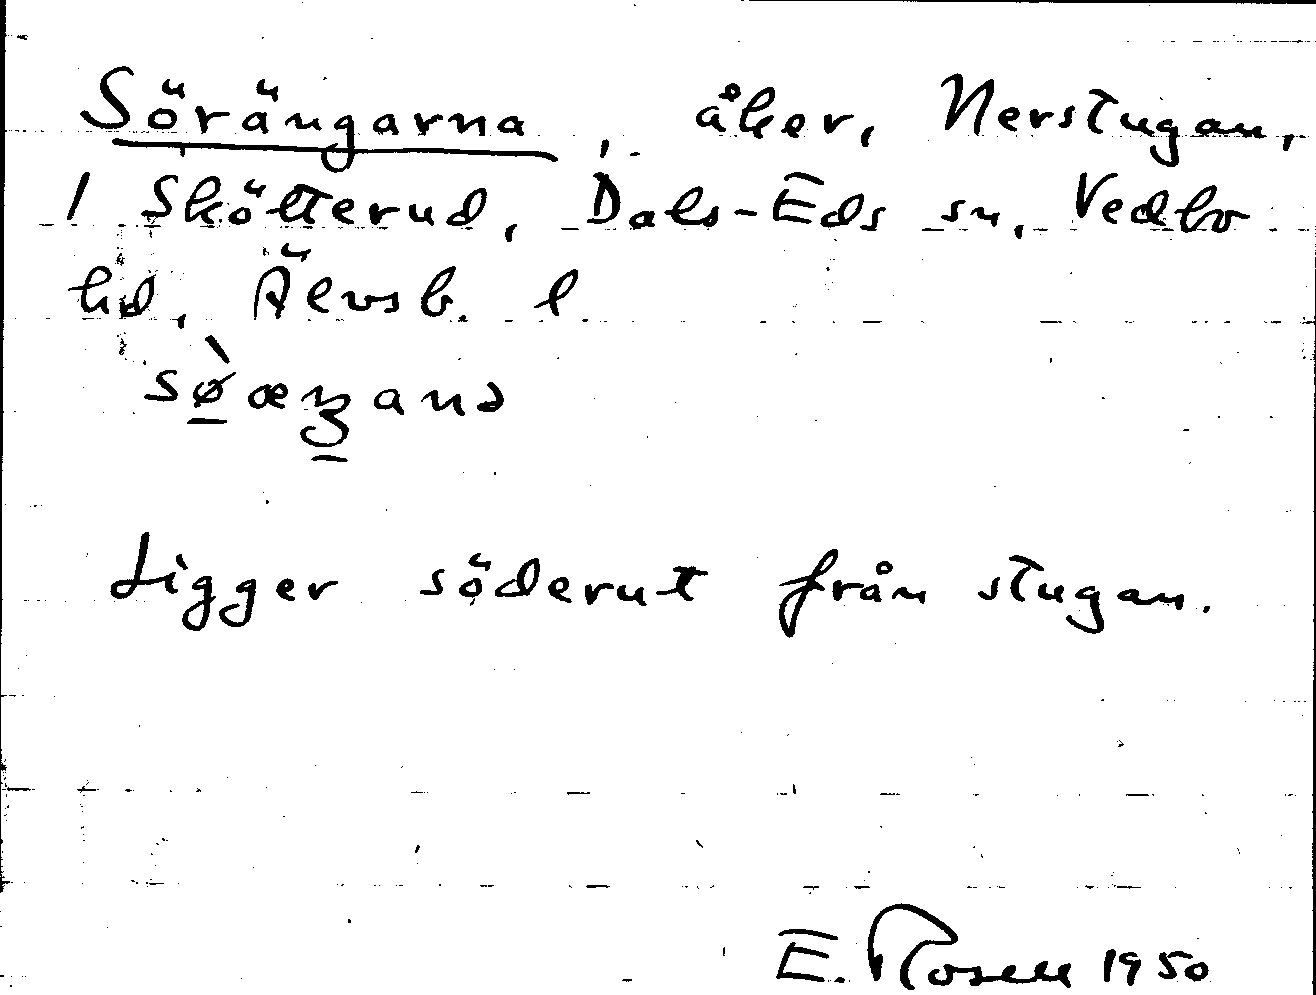 Sörängarna, åker, Nerstugan,
1 Skötterud, Dals-Eds sn, Vedbo
hd, Älvsb. l
sø̀æŋanə
Ligger söderut från stugan.
E. Rosell 1950